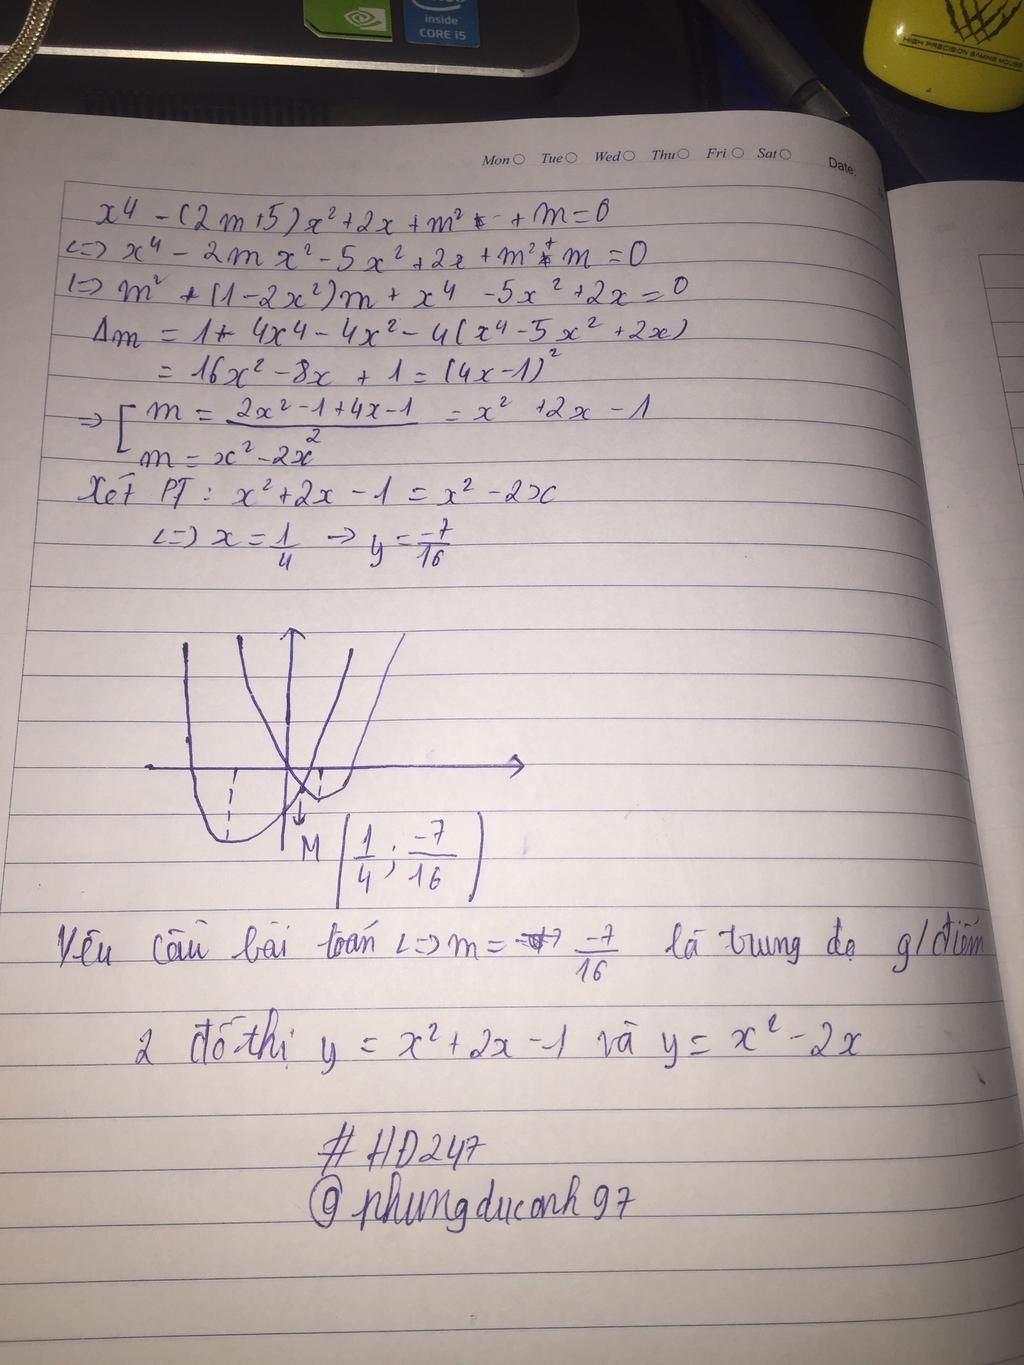 inside
CORE i5
HIGH PRECISION GAMING MOUSE
Mon Tue Wed Thu Fri Sat Date:
x⁴ - (2m+5)x² + 2x + m² + m = 0
<=> x⁴ - 2mx² - 5x² + 2x + m² + m = 0
<=> m² + (1-2x²)m + x⁴ - 5x² + 2x = 0
Δm = 1 + 4x⁴ - 4x² - 4(x⁴ - 5x² + 2x)
= 16x² - 8x + 1 = (4x-1)²
=> [ m = (2x² - 1 + 4x - 1)/2 = x² + 2x - 1
m = x² - 2x
Xét PT: x² + 2x - 1 = x² - 2x
<=> x = 1/4 -> y = -7/16
M (1/4 ; -7/16)
Yêu cầu bài toán <=> m = -7/16 là trung độ g/điểm
2 đồ thị y = x² + 2x - 1 và y = x² - 2x
# HD247
@phungducanh97